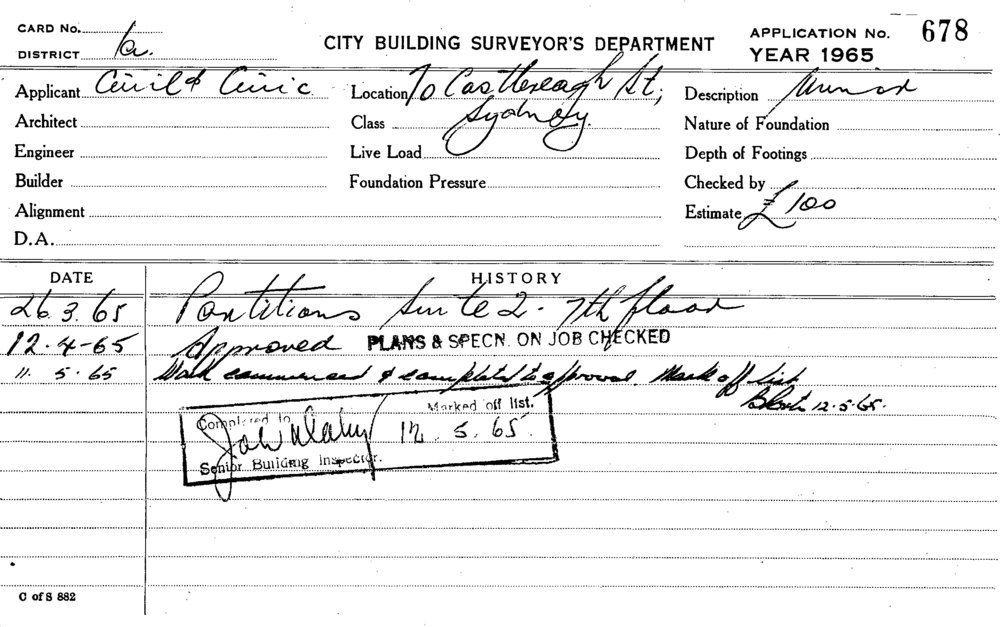 CARD No.
DISTRICT
CITY BUILDING SURVEYOR'S DEPARTMENT
APPLICATION No. 678
YEAR 1965
Applicant Civil & Civic
Location 70 Castlereagh St,
Description Minor
Architect
Class Sydney.
Nature of Foundation
Engineer
Live Load
Depth of Footings
Builder
Foundation Pressure
Checked by
Alignment
Estimate £100
D.A.
DATE HISTORY
26.3.65 Partitions Suite 2. 7th floor
12.4-65 Approved PLANS & SPECN. ON JOB CHECKED
11. 5.65 Work commenced & completed to approval. Mark off list
12.5.65.
Completed to Marked off list.
12. 5. 65.
Senior Building Inspector.
C of S 882